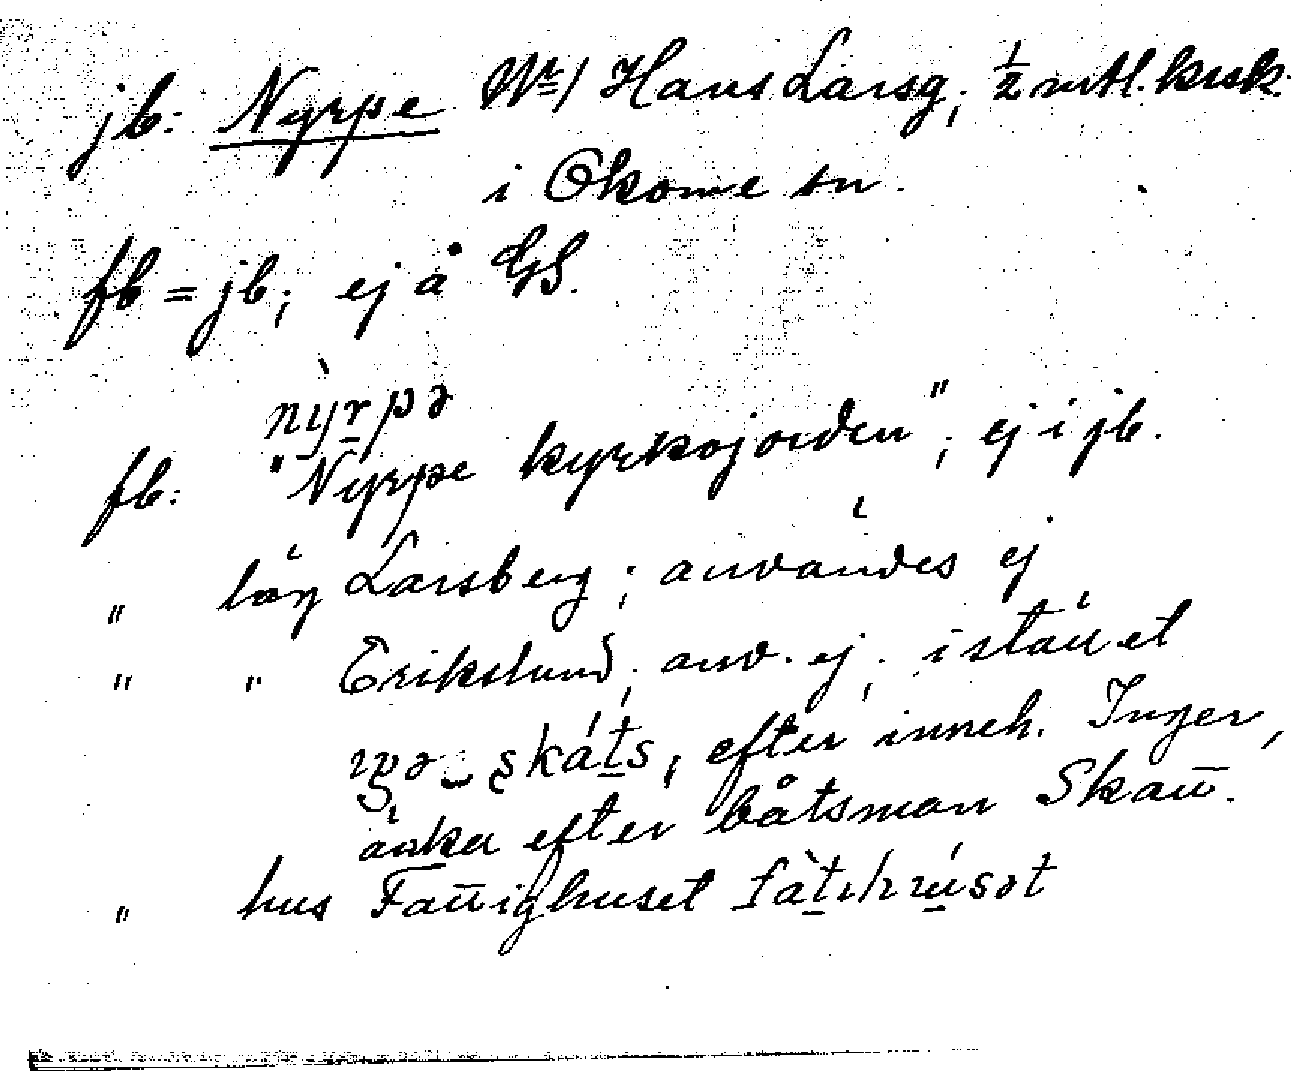 jb: Nyrpe Nr 1 Hans Larsg; 1/2 mtl. krsk.
i Okome sn.
fb = jb; ej å GS.
fb: "Nyrpe kyrkojorden"; ej i jb.
" läg Larsberg; användes ej
" " Erikslund; anv. ej; i stället
efter inneh. Inger,
änka efter båtsman Skatt.
" hus Fattighuset